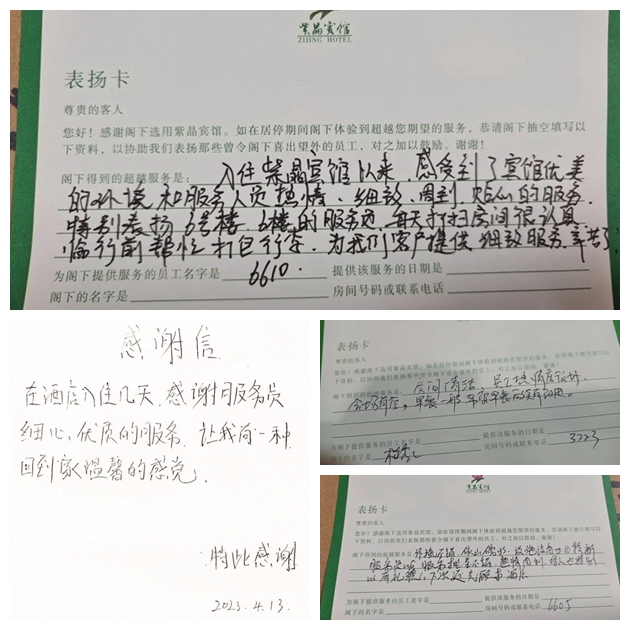 紫晶宾馆
ZIJING HOTEL
表扬卡
尊贵的客人
您好！感谢阁下选用紫晶宾馆。如在居停期间阁下体验到超越您期望的服务，恭请阁下抽空填写以
下资料，以协助我们表扬那些曾令阁下喜出望外的员工，对之加以鼓励。谢谢！
阁下得到的超越服务是：入住紫晶宾馆以来，感受到了宾馆优美
的环境和服务人员热情、细致、周到、贴心的服务
特别表扬6号楼、6楼的服务员，每天打扫房间很认真
临行前帮忙打包行李，为我们客户提供细致服务，辛苦了
为阁下提供服务的员工名字是 6610. 提供该服务的日期是
阁下的名字是 房间号码或联系电话
感谢信
在酒店入住几天，感谢服务员
细心、优质的服务，让我有一种
回到家温馨的感觉，
特此感谢
2023.4.13
表扬卡
尊贵的客人
您好！感谢阁下选用紫晶宾馆。如在居停期间阁下体验到超越您期望的服务，恭请阁下抽空填写以
下资料，以协助我们表扬那些曾令阁下喜出望外的员工，对之加以鼓励。谢谢！
阁下得到的超越服务是：房间清洁，员工热情度较好，
早餐一般，希望早餐
为阁下提供服务的员工名字是 提供该服务的日期是
阁下的名字是 房间号码或联系电话 3223
紫晶宾馆
表扬卡
尊贵的客人
您好！感谢阁下选用紫晶宾馆。如在居停期间阁下体验到超越您期望的服务，恭请阁下抽空填写以
下资料，以协助我们表扬那些曾令阁下喜出望外的员工，对之加以鼓励。谢谢！
阁下得到的超越服务是：环境不错，依山傍水，设施
服务
下次还
为阁下提供服务的员工名字是 提供该服务的日期是
阁下的名字是 房间号码或联系电话 6605